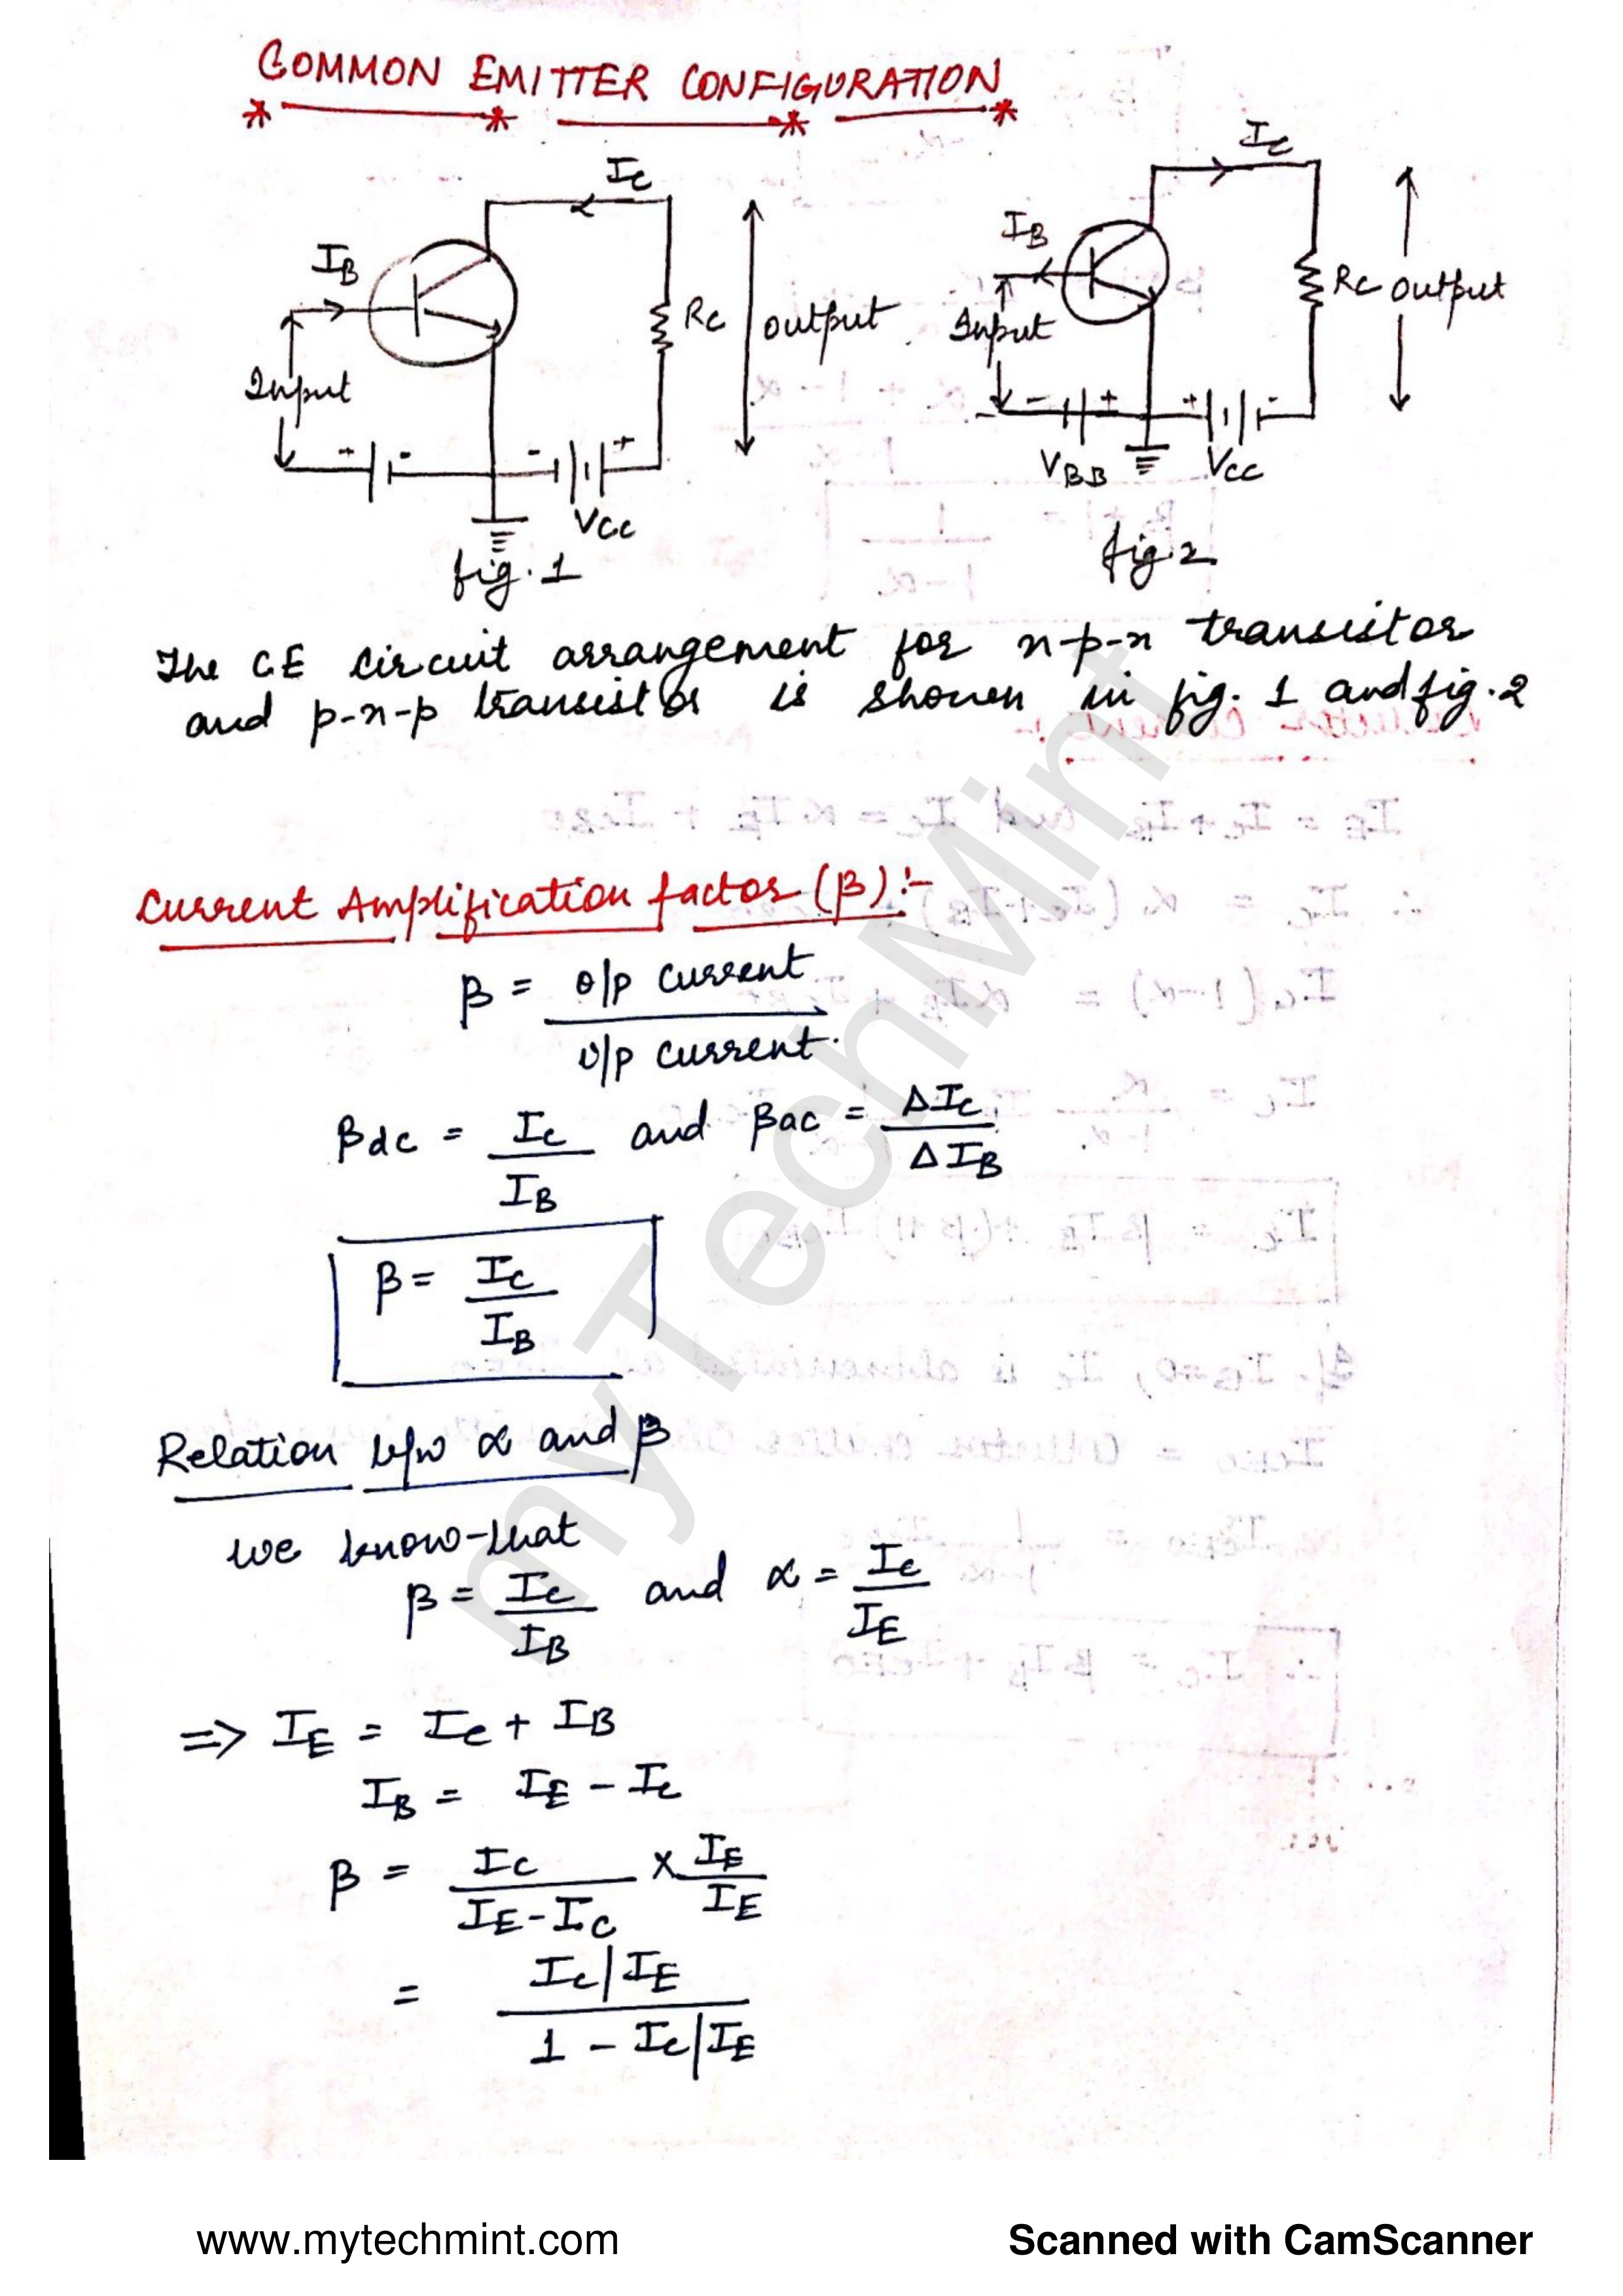 COMMON EMITTER CONFIGURATION
Ic
IB
Rc
output
Input
+ - - +
Vcc
fig. 1
Ic
IB
Rc output
Input
- + + -
VBB Vcc
fig. 2
The CE circuit arrangement for n-p-n transistor
and p-n-p transistor is shown in fig. 1 and fig. 2
Current Amplification factor (β) :-
β = o/p current
i/p current.
βdc = Ic / IB and βac = ΔIc / ΔIB
β = Ic / IB
Relation b/w α and β
we know that
β = Ic / IB and α = Ic / IE
=> IE = Ic + IB
IB = IE - Ic
β = Ic / IE - Ic × IE / IE
= Ic|IE / 1 - Ic|IE
myTechMint
www.mytechmint.com
Scanned with CamScanner